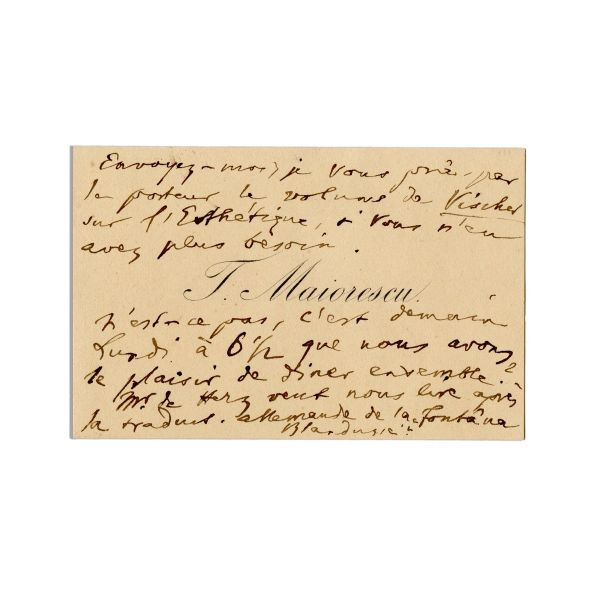 Envoyez-moi, je vous prie, par
le porteur le volume de Vischer
sur l'Esthétique, si vous n'en
avez plus besoin.
T. Maiorescu.
N'est-ce pas, c'est demain
Lundi à 6½ que nous avons
le plaisir de dîner ensemble?
Mr de Herz veut nous lire après
la traduct. allemande de la „Fontâna
Blandusiei“